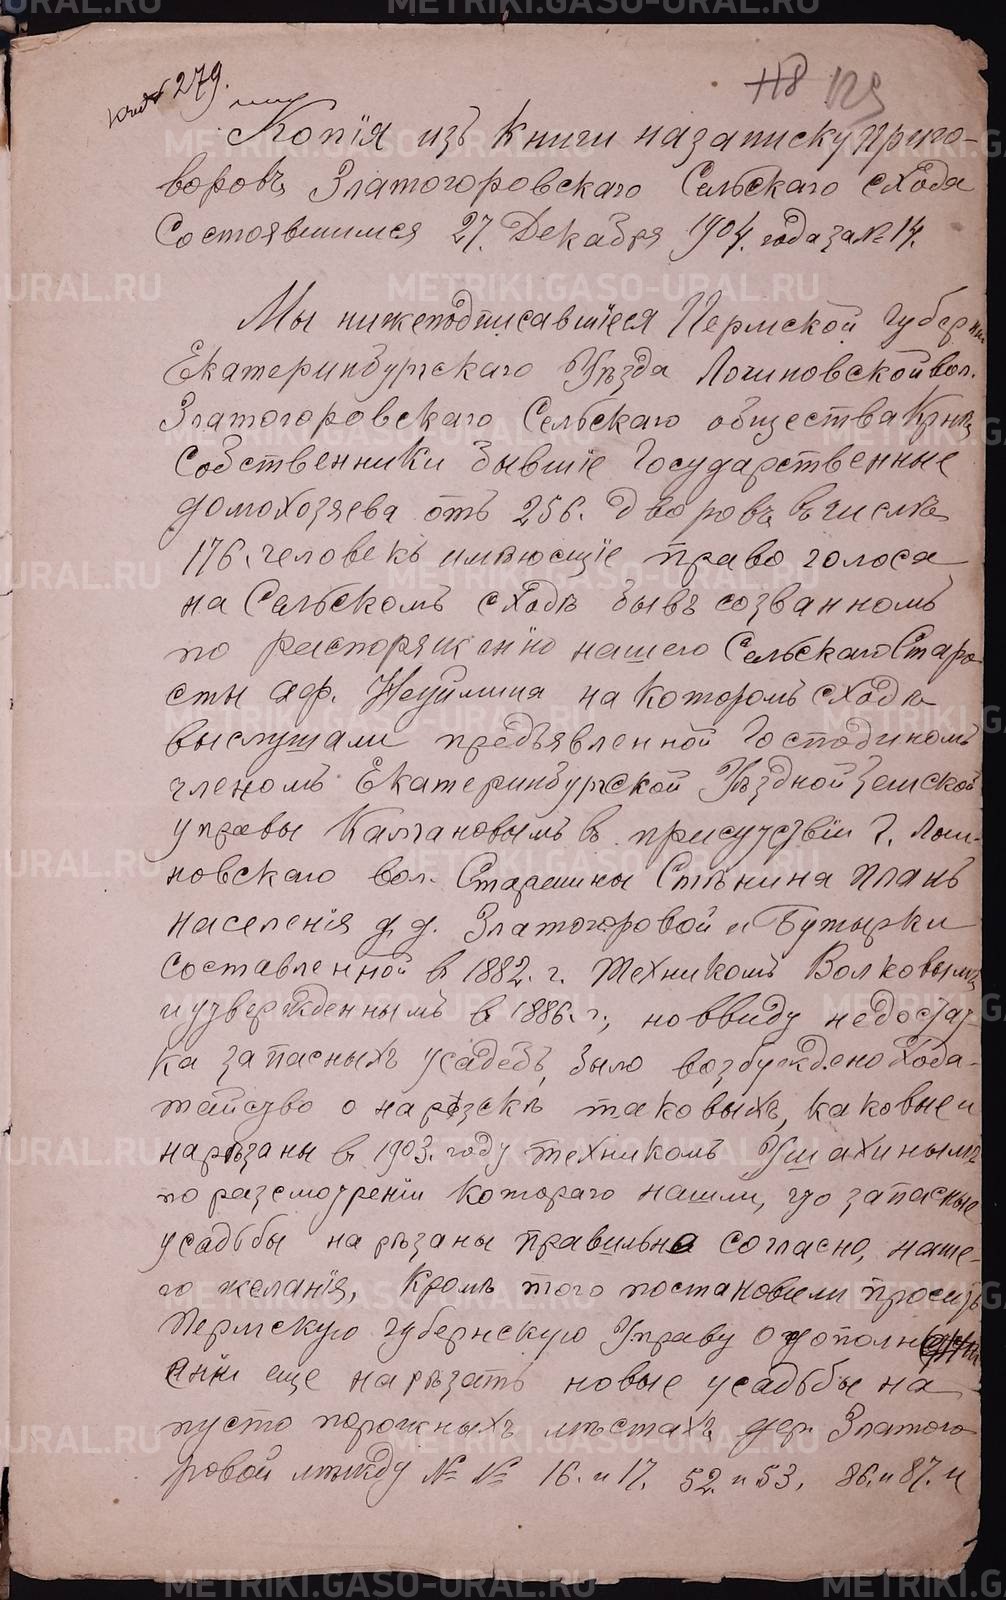 279.
118 129
Копія изъ книги на записку приго-
воровъ Златогоровскаго Сельскаго схода
Состоявшимся 27. Декабря 1904. года за № 14.
Мы нижеподписавшіеся Пермской губерніи
Екатеринбургскаго Уѣзда Логиновской вол.
Златогоровскаго Сельскаго общества Крнц
Собственники бывшіе Государственные
домохозяева отъ 256. дворовъ въ числѣ
176. человекъ имѣющіе право голоса
на Сельскомъ сходѣ бывъ созванномъ
по распоряженію нашего Сельскаго Старо
сты Аф. Неуймина на которомъ сходѣ
выслушали предъявленной Господиномъ
членомъ Екатеринбургской Уѣздной Земской
управы Калгановымъ въ присутствіи г. Логи-
новскаго вол. Старшины Стѣнина планъ
населенія д.д. Златогоровой и Бутырки
составленной въ 1882. г. техникомъ Волковымъ
и утвержденнымъ въ 1886. г., но ввиду недостат-
ка запасныхъ усадебъ, было возбуждено хода-
тайство о нарѣзкѣ таковыхъ, каковые и
нарѣзаны въ 1903. году техникомъ Ушахинымъ
по разсмотреніи котораго нашли, что запасные
усадьбы нарѣзаны правильно согласно, наше-
го желанія, Кромѣ того постановили просить
Пермскую губернскую Управу о дополн
еніи еще нарѣзать новые усадьбы на
пусто порожныхъ мѣстахъ дер. Златого
ровой между № № 16. и 17. 52. и 53. 86. и 87. и
METRIKI.GASO-URAL.RU